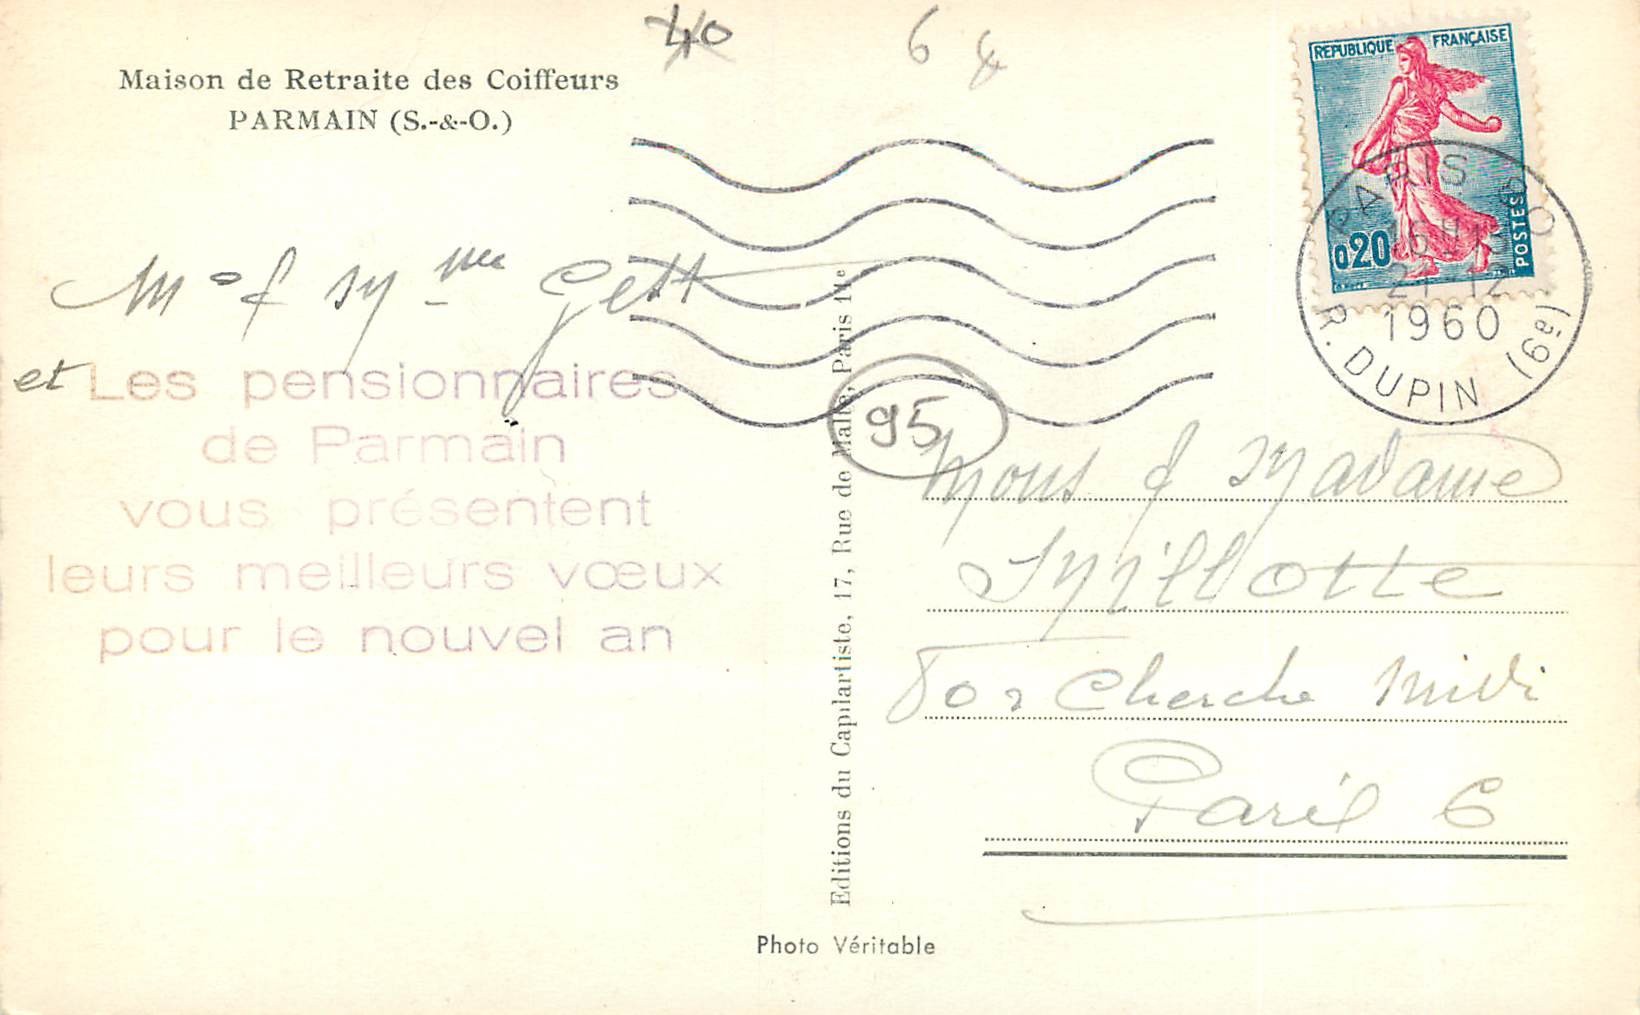 40
6
Maison de Retraite des Coiffeurs
PARMAIN (S.-&-O.)
REPUBLIQUE FRANÇAISE
0,20
POSTES
PARIS 60
21-12
1960
R. DUPIN (6è)
et Les pensionnaires
de Parmain
vous présentent
leurs meilleurs vœux
pour le nouvel an
Editions du Capilartiste, 17, Rue de Malte, Paris 11e
95
Mons & Madame
Cherche Midi
Paris 6
Photo Véritable